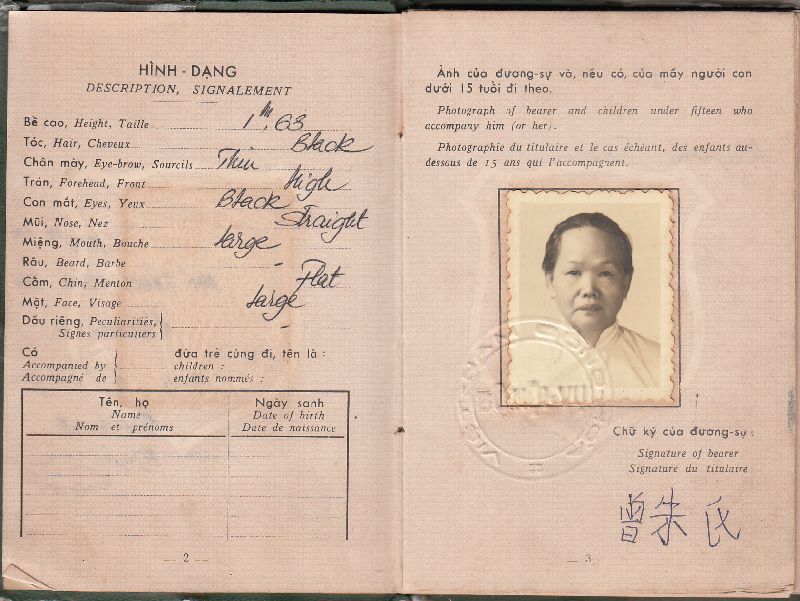 HÌNH - DẠNG
DESCRIPTION, SIGNALEMENT
Bề cao, Height, Taille 1m,63
Tóc, Hair, Cheveux Black
Chân mày, Eye-brow, Sourcils Thin
Trán, Forehead, Front High
Con mắt, Eyes, Yeux Black
Mũi, Nose, Nez Straight
Miệng, Mouth, Bouche Large
Râu, Beard, Barbe -
Cằm, Chin, Menton Flat
Mặt, Face, Visage Large
Dấu riêng, Peculiarities,
Signes particuliers -
Có đứa trẻ cùng đi, tên là :
Accompanied by children :
Accompagné de enfants nommés :
Tên, họ Ngày sanh
Name Date of birth
Nom et prénoms Date de naissance
— 2 —
Ảnh của đương-sự và, nếu có, của mấy người con
dưới 15 tuổi đi theo.
Photograph of bearer and children under fifteen who
accompany him (or her).
Photographie du titulaire et le cas échéant, des enfants au-
dessous de 15 ans qui l'accompagnent.
VIỆT-NAM CỘNG HÒA
Chữ ký của đương-sự :
Signature of bearer
Signature du titulaire
曾朱氏
— 3